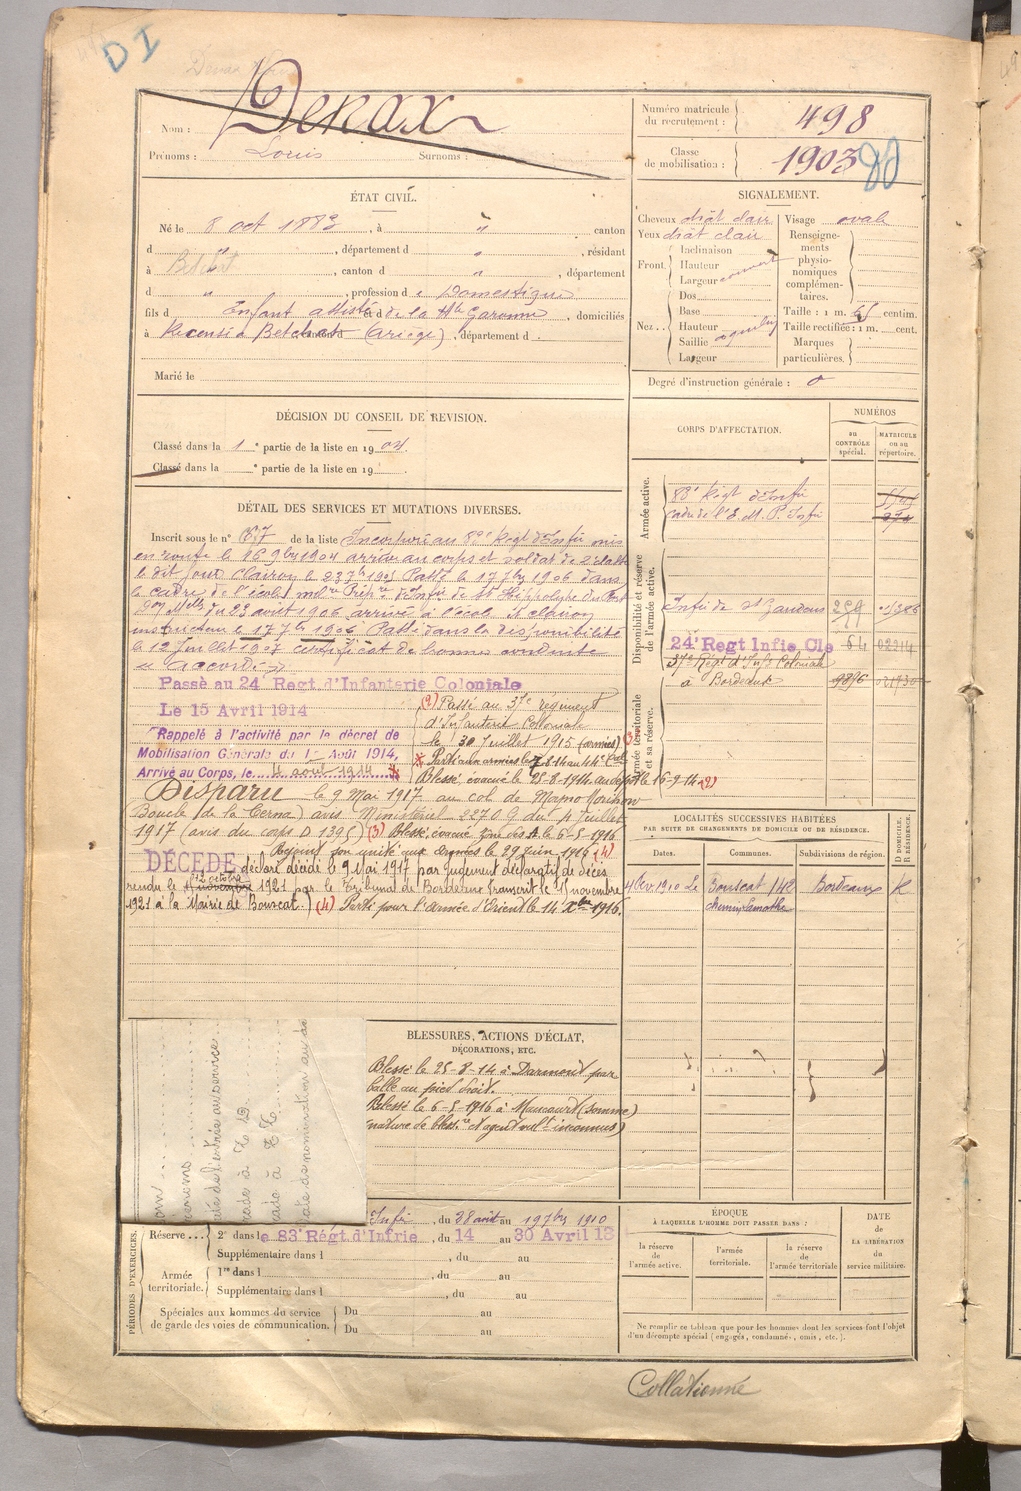 D I
Nom : Denax
Prénoms : Louis Surnoms :
Numéro matricule du recrutement : 498
Classe de mobilisation : 1903
ÉTAT CIVIL.
Né le 8 oct 1883, à " canton
d " , département d " , résidant
à Betchat , canton d " , département
d " , profession d e Domestique
fils d Enfant assisté et d de la Hte Garonne , domiciliés
à Recensé à Betchat (Ariège) , département d
Marié le
SIGNALEMENT.
Cheveux chât clair Visage ovale
Yeux chât clair
Front Inclinaison
Hauteur
Largeur couvert
Nez Dos
Base
Hauteur
Saillie
Largeur
Renseignements physionomiques complémentaires.
Taille : 1 m. 65 centim.
Taille rectifiée : 1 m. cent.
Marques particulières.
Degré d'instruction générale : 0
DÉCISION DU CONSEIL DE REVISION.
Classé dans la 1e partie de la liste en 1904.
Classé dans la e partie de la liste en 19
CORPS D'AFFECTATION.
NUMÉROS
au CONTRÔLE spécial.
MATRICULE ou au répertoire.
Armée active.
83e Régt d'Infie
Cadre de l'E. M. P. Infie
Disponibilité et réserve de l'armée active.
Infie de St Gaudens
24e Regt Infie Cle 64 02914
37e Régt d'Infie Coloniale
à Bordeaux 9896
Armée territoriale et sa réserve.
DÉTAIL DES SERVICES ET MUTATIONS DIVERSES.
Inscrit sous le n° 67 de la liste Incorporé au 83e Régt d'Infie mis
en route le 16 9bre 1904 arrivé au corps et soldat de 2e classe
le dit jour Clairon le 23 7bre 1905 Passé le 17 7bre 1906 dans
le cadre de l'école milre Prépre d'Infie de St Hippolyte du Fort
du 23 août 1906 arrivé à l'école et clairon
instructeur le 17 7bre 1906 Passé dans la disponibilité
le 12 Juillet 1907 certificat de bonne conduite
accordé
Passé au 24e Regt d'Infanterie Coloniale
Le 15 Avril 1914
Rappelé à l'activité par le décret de
Mobilisation Générale du 1er Août 1914,
Arrivé au Corps, le 4 août 1914
(2) Passé au 37e régiment
d'Infanterie Coloniale
le 30 Juillet 1915 (armées) (3)
Parti aux armées le 7.8.14 au 44e Cal
Blessé, évacué le 25-8-1914, au dépôt le 16-9-14 (2)
Disparu le 9 Mai 1917 au col de
Boucle de la Cerna) avis Ministériel 2270 9 du 4 Juillet
1917 (avis du corps D 1396) (3) Blessé, évacué zone des A. le 6-5-1916
Rejoint son unité aux armées le 29 juin 1916 (4)
DÉCÉDÉ déclaré décédé le 9 Mai 1917 par jugement déclaratif de décès
rendu le 12 octobre 1921 par le Tribunal de Bordeaux (transcrit le 11 novembre
1921 à la Mairie de Bouscat.) (4) Parti pour l'armée d'Orient le 14 Xbre 1916.
LOCALITÉS SUCCESSIVES HABITÉES
PAR SUITE DE CHANGEMENTS DE DOMICILE OU DE RÉSIDENCE.
Dates. Communes. Subdivisions de région. D DOMICILE. R RÉSIDENCE.
4 fév. 1910 Le Bouscat Bordeaux R
chemin Lamothe
BLESSURES, ACTIONS D'ÉCLAT,
DÉCORATIONS, ETC.
Blessé le 25-8-14 à par
balle au pied droit.
Blessé le 6-5-1916 à Maucourt (Somme)
nature de blessre et agent vult inconnus)
PÉRIODES D'EXERCICES.
Infie , du 28 août au 19 7bre 1910
Réserve ... 2e dans le 83e Régt d'Infrie , du 14 au 30 Avril 13
Supplémentaire dans l , du au
Armée territoriale. 1re dans l , du au
Supplémentaire dans l , du au
Spéciales aux hommes du service de garde des voies de communication. Du au
Du au
ÉPOQUE
À LAQUELLE L'HOMME DOIT PASSER DANS :
la réserve de l'armée active.
l'armée territoriale.
la réserve de l'armée territoriale
DATE DE LA LIBÉRATION du service militaire.
Ne remplir ce tableau que pour les hommes dont les services font l'objet
d'un décompte spécial (engagés, condamnés, omis, etc.).
Collationné